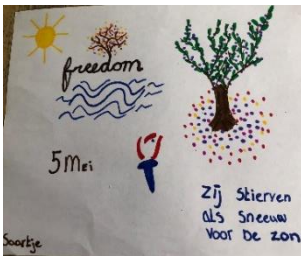 freedom
5 Mei
Zij Stierven
als Sneeuw
voor De zon
Saartje